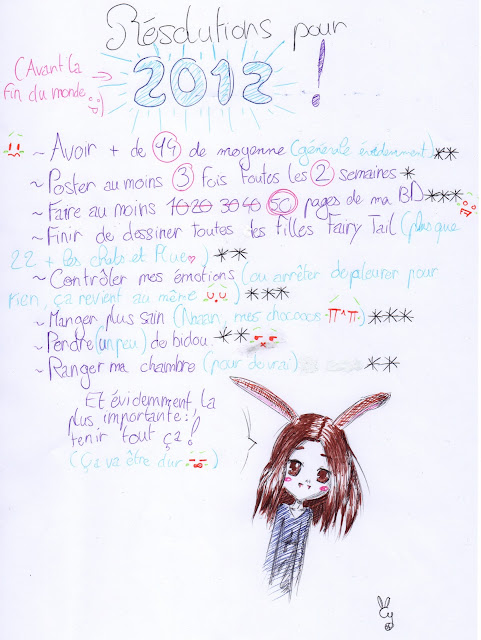 Résolutions pour
2012 !
(Avant la
fin du monde
~ Avoir + de 14 de moyenne (générale évidemment) **
~ Poster au moins 3 fois toutes les 2 semaines *
~ Faire au moins 10 20 30 40 50 pages de ma BD ***
~ Finir de dessiner toutes les filles Fairy Tail (plus que
22 + les chats et Plue ♥) **
~ Contrôler mes émotions (ou arrêter de pleurer pour
rien, ça revient au même) ***
~ Manger plus sain (Naaan, mes chococos π^π) ***
~ Perdre (un peu) de bidou **
~ Ranger ma chambre (pour de vrai) **
Et évidemment, la
plus importante :
tenir tout ça !
(Ça va être dur)
Cy